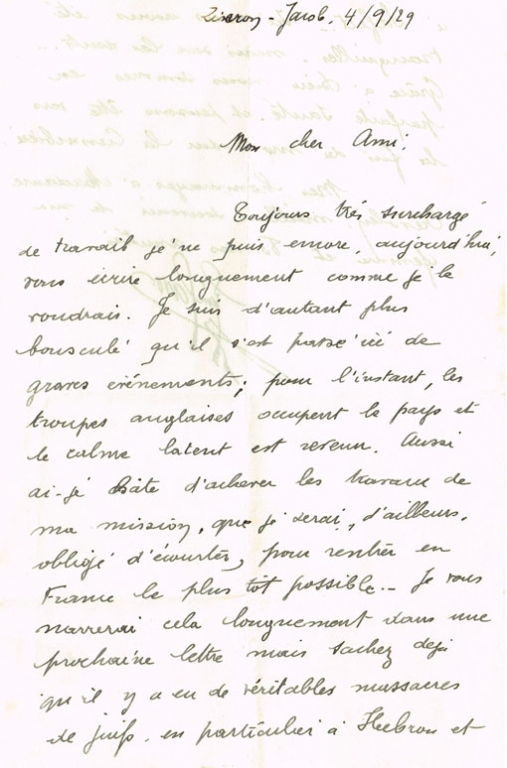 Zicron-Jacob, 4/9/29
Mon cher Ami:
Toujours très surchargé
de travail je ne puis encore, aujourd'hui,
vous écrire longuement comme je le
voudrais. Je suis d'autant plus
bousculé qu'il s'est passé ici de
graves événements; pour l'instant, les
troupes anglaises occupent le pays et
le calme latent est revenu. Aussi
ai-je hâte d'achever les travaux de
ma mission, que je serai, d'ailleurs,
obligé d'écourter, pour rentrer en
France le plus tôt possible.- Je vous
narrerai cela longuement dans une
prochaine lettre mais sachez déjà
qu'il y a eu de véritables massacres
de juifs. en particulier à Hebron et